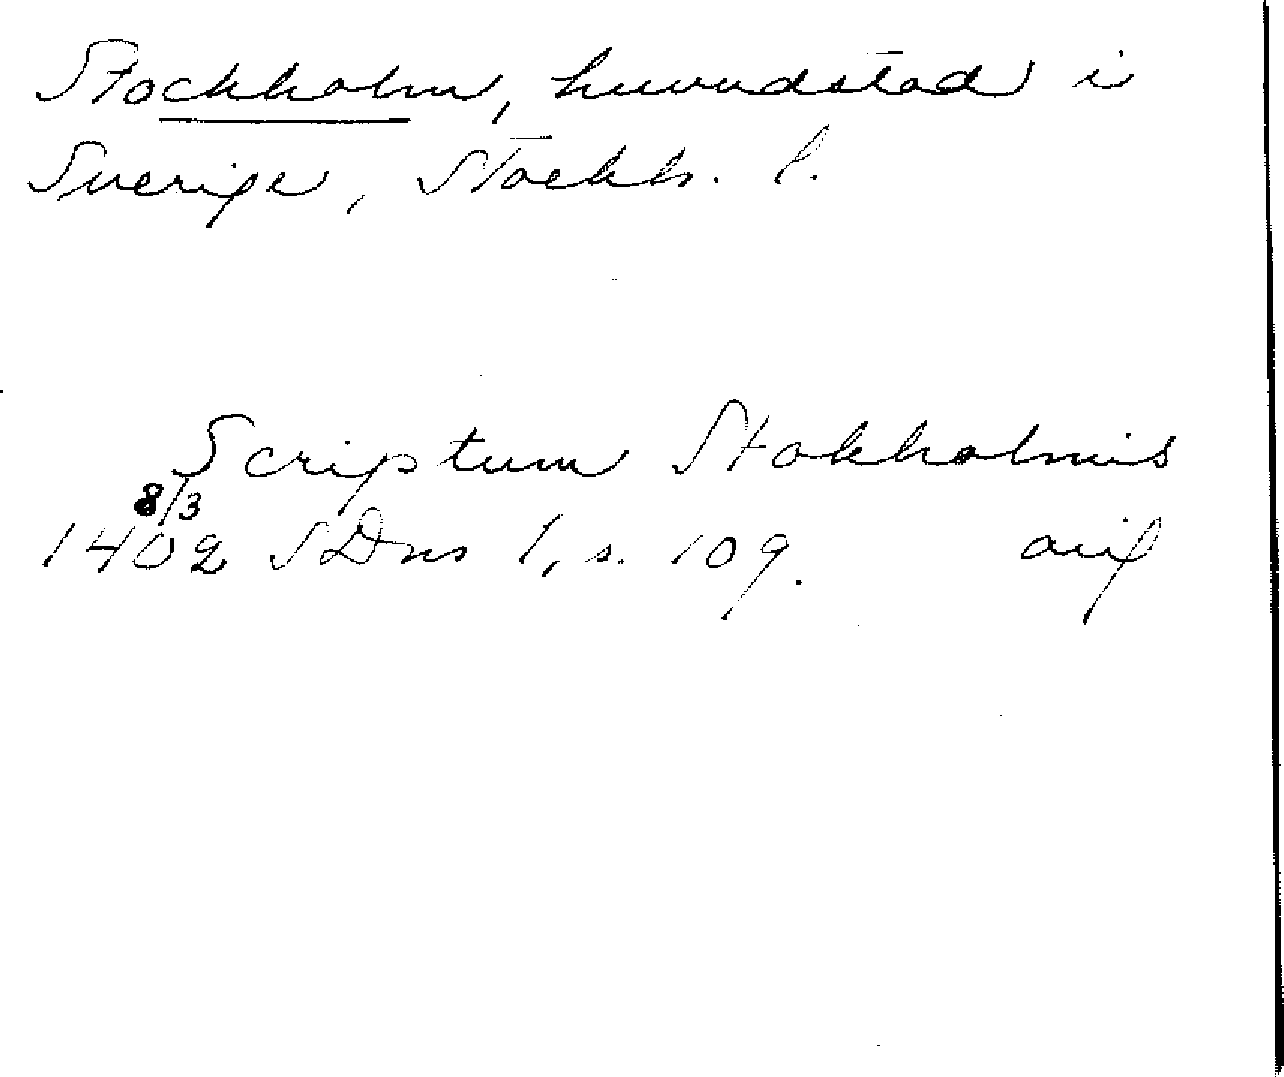 Stockholm, huvudstad i
Sverige, Stockh. l.
Scriptum Stokholmis
8/3
1402 SDns 1, s. 109. avif